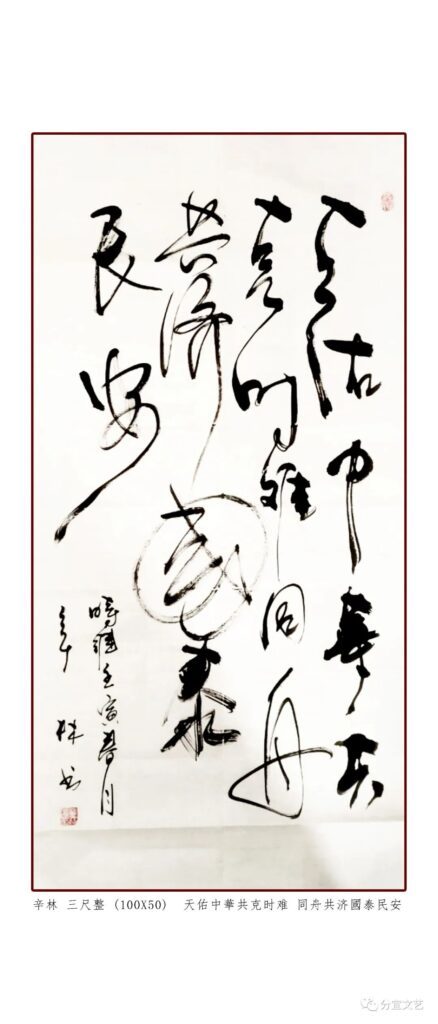 天佑中華共
克时难同舟
共济國泰
民安
時維壬寅春月
辛林书
辛林 三尺整 (100X50) 天佑中華共克时难 同舟共济國泰民安
分宜文艺